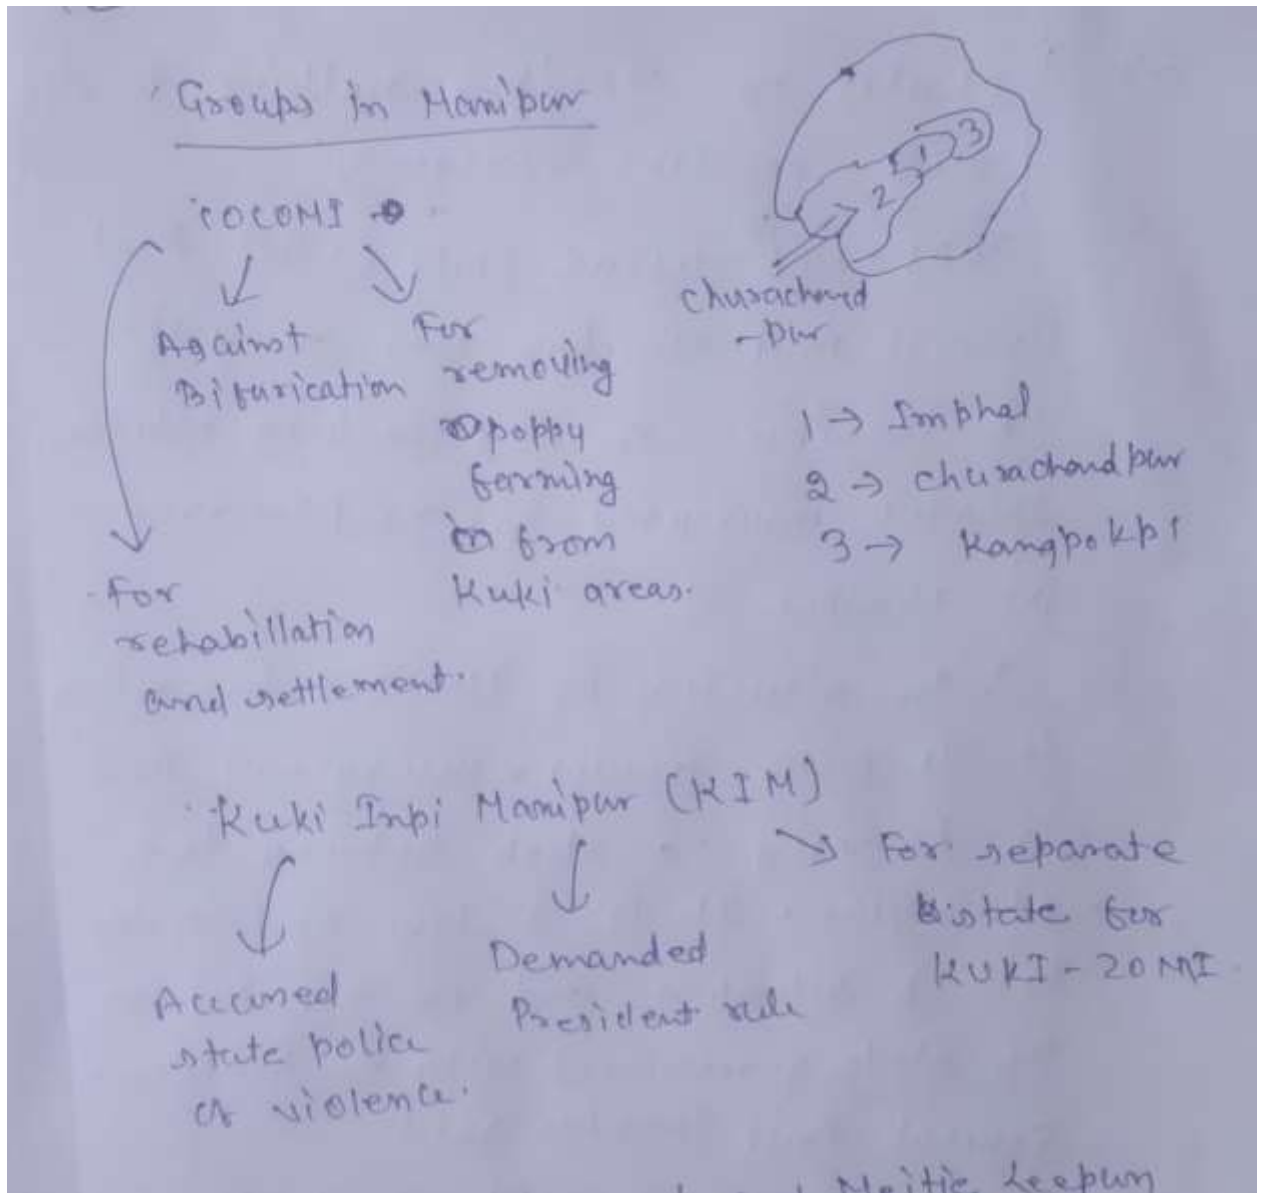 Groups in Manipur
COCOMI
Against
Bifurication
For
removing
poppy
farming
from
Kuki areas.
For
rehabillation
and settlement.
1
2
3
Churachand
-pur
1 → Imphal
2 → Churachandpur
3 → Kangpokpi
Kuki Inpi Manipur (KIM)
Accused
state police
of violence.
Demanded
President rule
For separate
state for
KUKI - ZOMI
Meitie Leepun